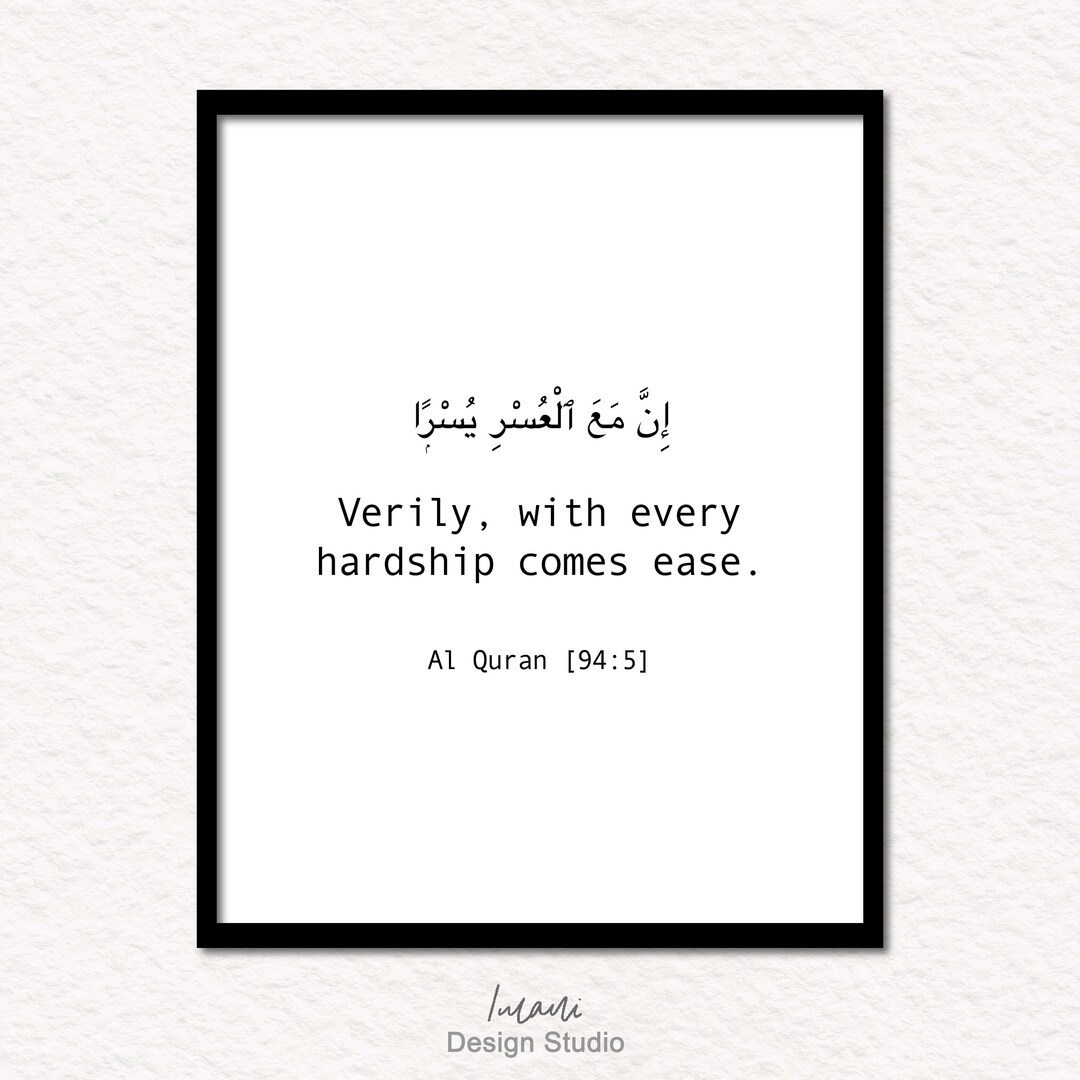 إِنَّ مَعَ ٱلْعُسْرِ يُسْرًۭا
Verily, with every
hardship comes ease.
Al Quran [94:5]
Design Studio